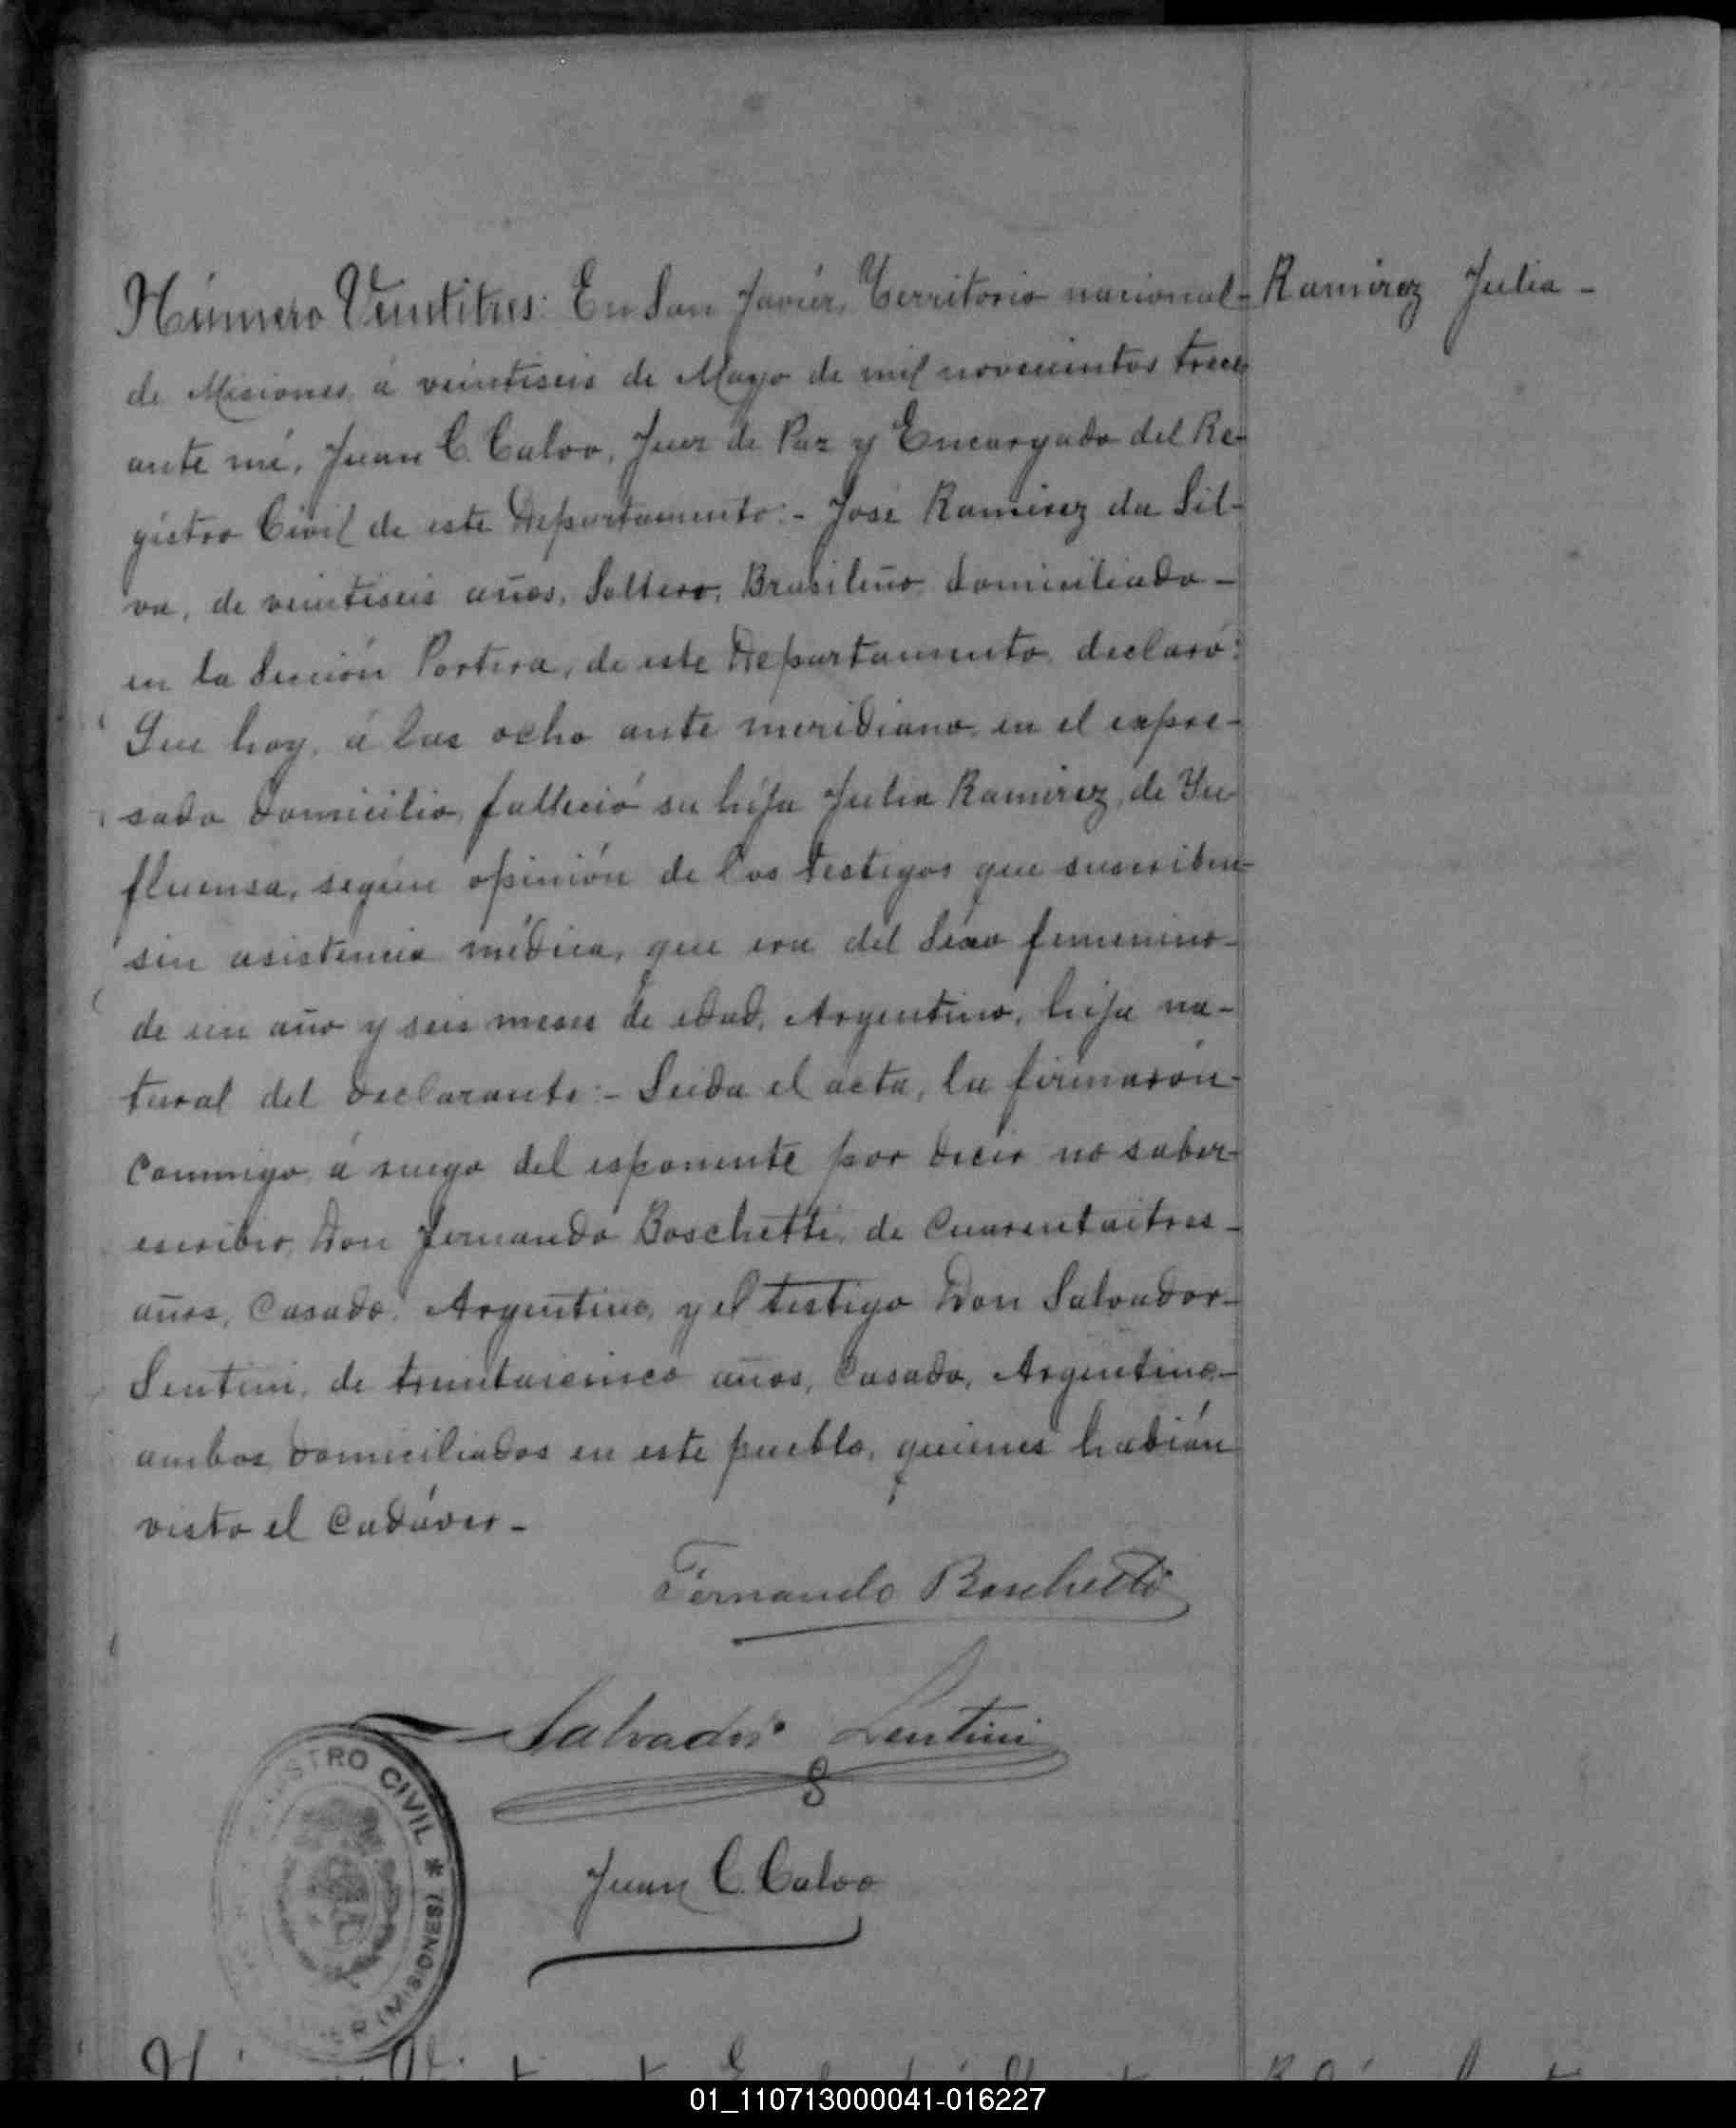 Número Veintitres: En San Javier, Territorio nacional- Ramirez Julia -
de Misiones, á veintiseis de Mayo de mil novecientos trece,
ante mi, Juan C. Calvo, Juez de Paz y Encargado del Re-
gistro Civil de este Departamento:- José Ramirez da Sil-
va, de veintiseis años, Soltero, Brasileño, domiciliado-
en la Sección Portera, de este Departamento, declaró:
Que hoy, á las ocho ante meridiano, en el expre-
sado domicilio, falleció su hija Julia Ramirez, de In-
fluensa, según opinión de los testigos que suscriben-
sin asistencia médica, que era del Sexo femenino-
de un año y seis meses de edad, Argentino, hija na-
tural del declarante:- Leida el acta, la firmarón-
conmigo, á ruego del esponente por decir no saber-
escribir, Don Fernando Boschetti, de Cuarentaitres-
años, Casado, Argentino, y el testigo Don Salvador-
Lentini, de treintaicinco años, Casado, Argentino-
ambos domiciliados en este pueblo, quienes habián
visto el Cadáver-
Fernando Boschetti
Salvador Lentini
Juan C. Calvo
REGISTRO CIVIL * (MISIONES)
01_110713000041-016227